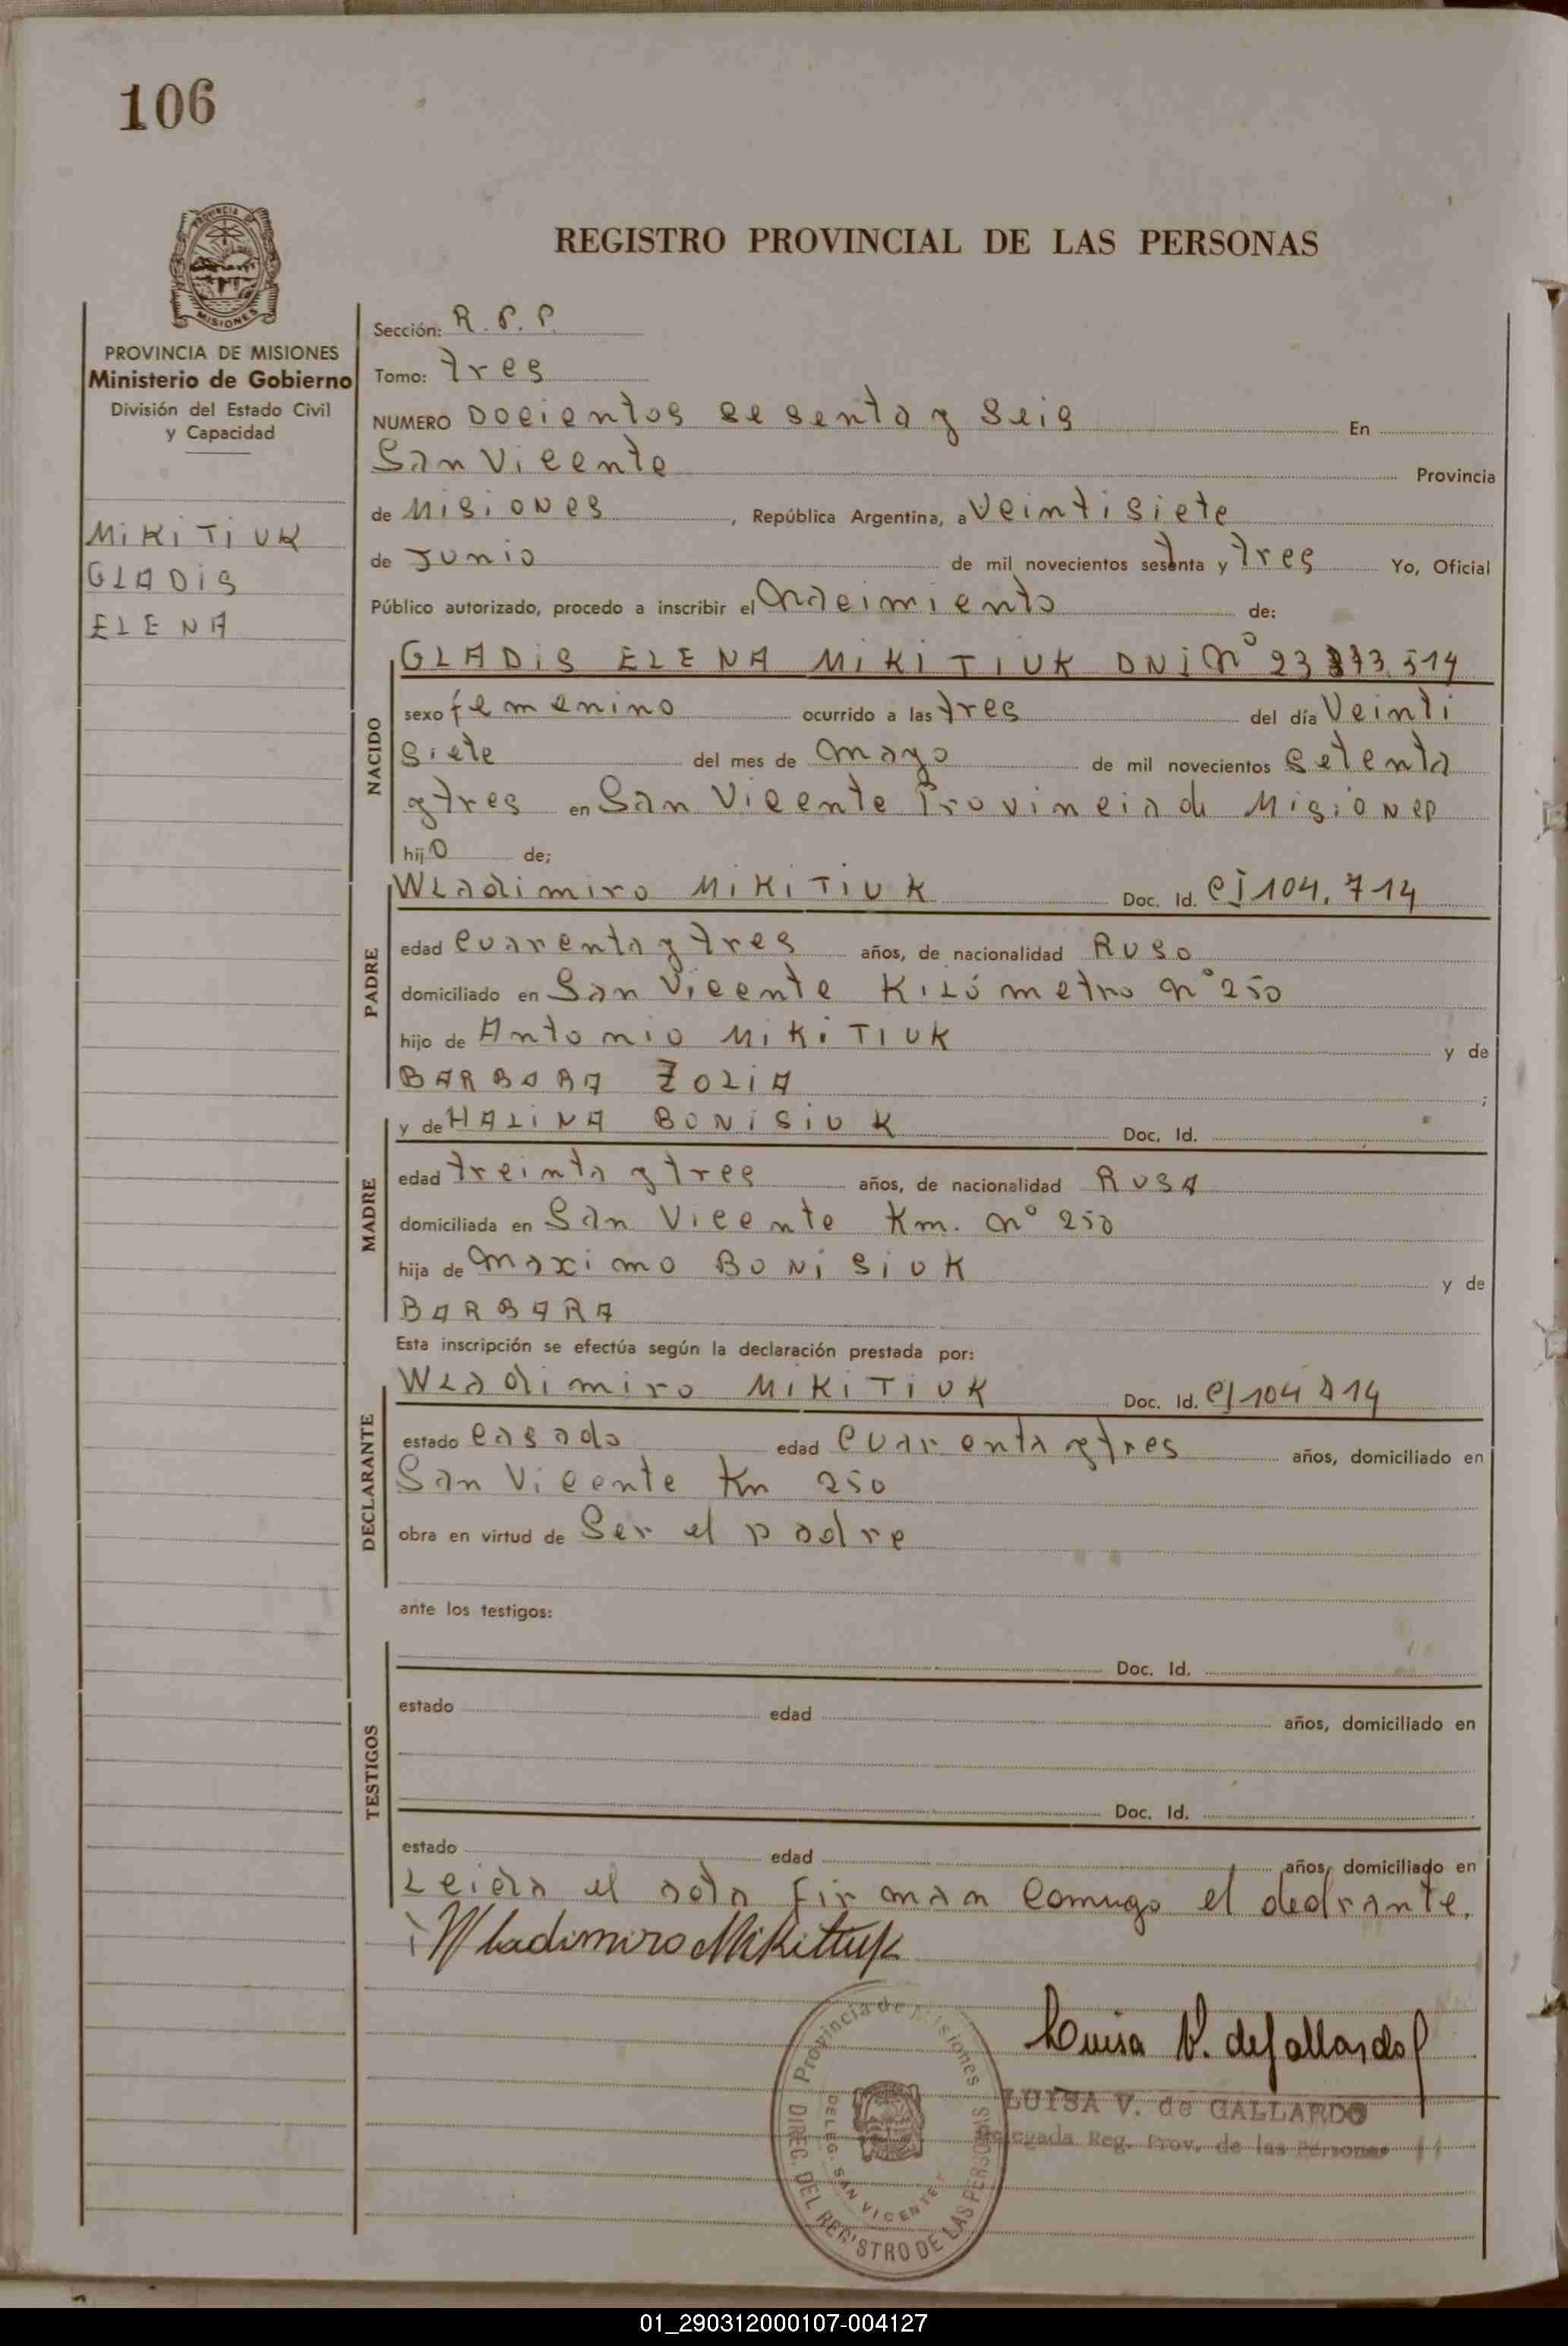 106
REGISTRO PROVINCIAL DE LAS PERSONAS
PROVINCIA DE MISIONES
Ministerio de Gobierno
División del Estado Civil
y Capacidad
MiKiTiUK
GLADiS
ELENA
Sección: R.P.P.
Tomo: tres
NUMERO Docientos sesenta y seis En
San Vicente Provincia
de Misiones, República Argentina, a Veintisiete
de Junio de mil novecientos setenta y tres Yo, Oficial
Público autorizado, procedo a inscribir el nacimiento de:
NACIDO
GLADiS ELENA MIKITIUK DNi Nº 23 373.514
sexo femenino ocurrido a las tres del día Veinti
siete del mes de mayo de mil novecientos setenta
y tres en San Vicente Provincia de Misiones
hijo de;
PADRE
Wladimiro MiKiTiUK Doc. Id. CI 104.714
edad cuarenta y tres años, de nacionalidad Ruso
domiciliado en San Vicente Kilómetro nº 250
hijo de Antonio MiKiTIUK y de
BARBARA ZOLIA ;
MADRE
y de HALiNA BONiSiUK Doc. Id.
edad treinta y tres años, de nacionalidad RUSA
domiciliada en San Vicente Km. nº 250
hija de maximo BONiSiUK y de
BARBARA
Esta inscripción se efectúa según la declaración prestada por:
DECLARANTE
Wladimiro MiKiTiUK Doc. Id. CI 104 714
estado casado edad cuarenta y tres años, domiciliado en
San Vicente Km 250
obra en virtud de Ser el padre
ante los testigos:
TESTIGOS
Doc. Id.
estado edad años, domiciliado en
Doc. Id.
estado edad años, domiciliado en
Leida el acta firman comugo el declrante.
Wladimiro Mikitiuk
Luisa V. de Gallardo
LUISA V. de GALLARDO
Delegada Reg. Prov. de las Personas
Provincia de Misiones
DIREC. DEL REGISTRO DE LAS PERSONAS
DELEG. SAN VICENTE
01_290312000107-004127